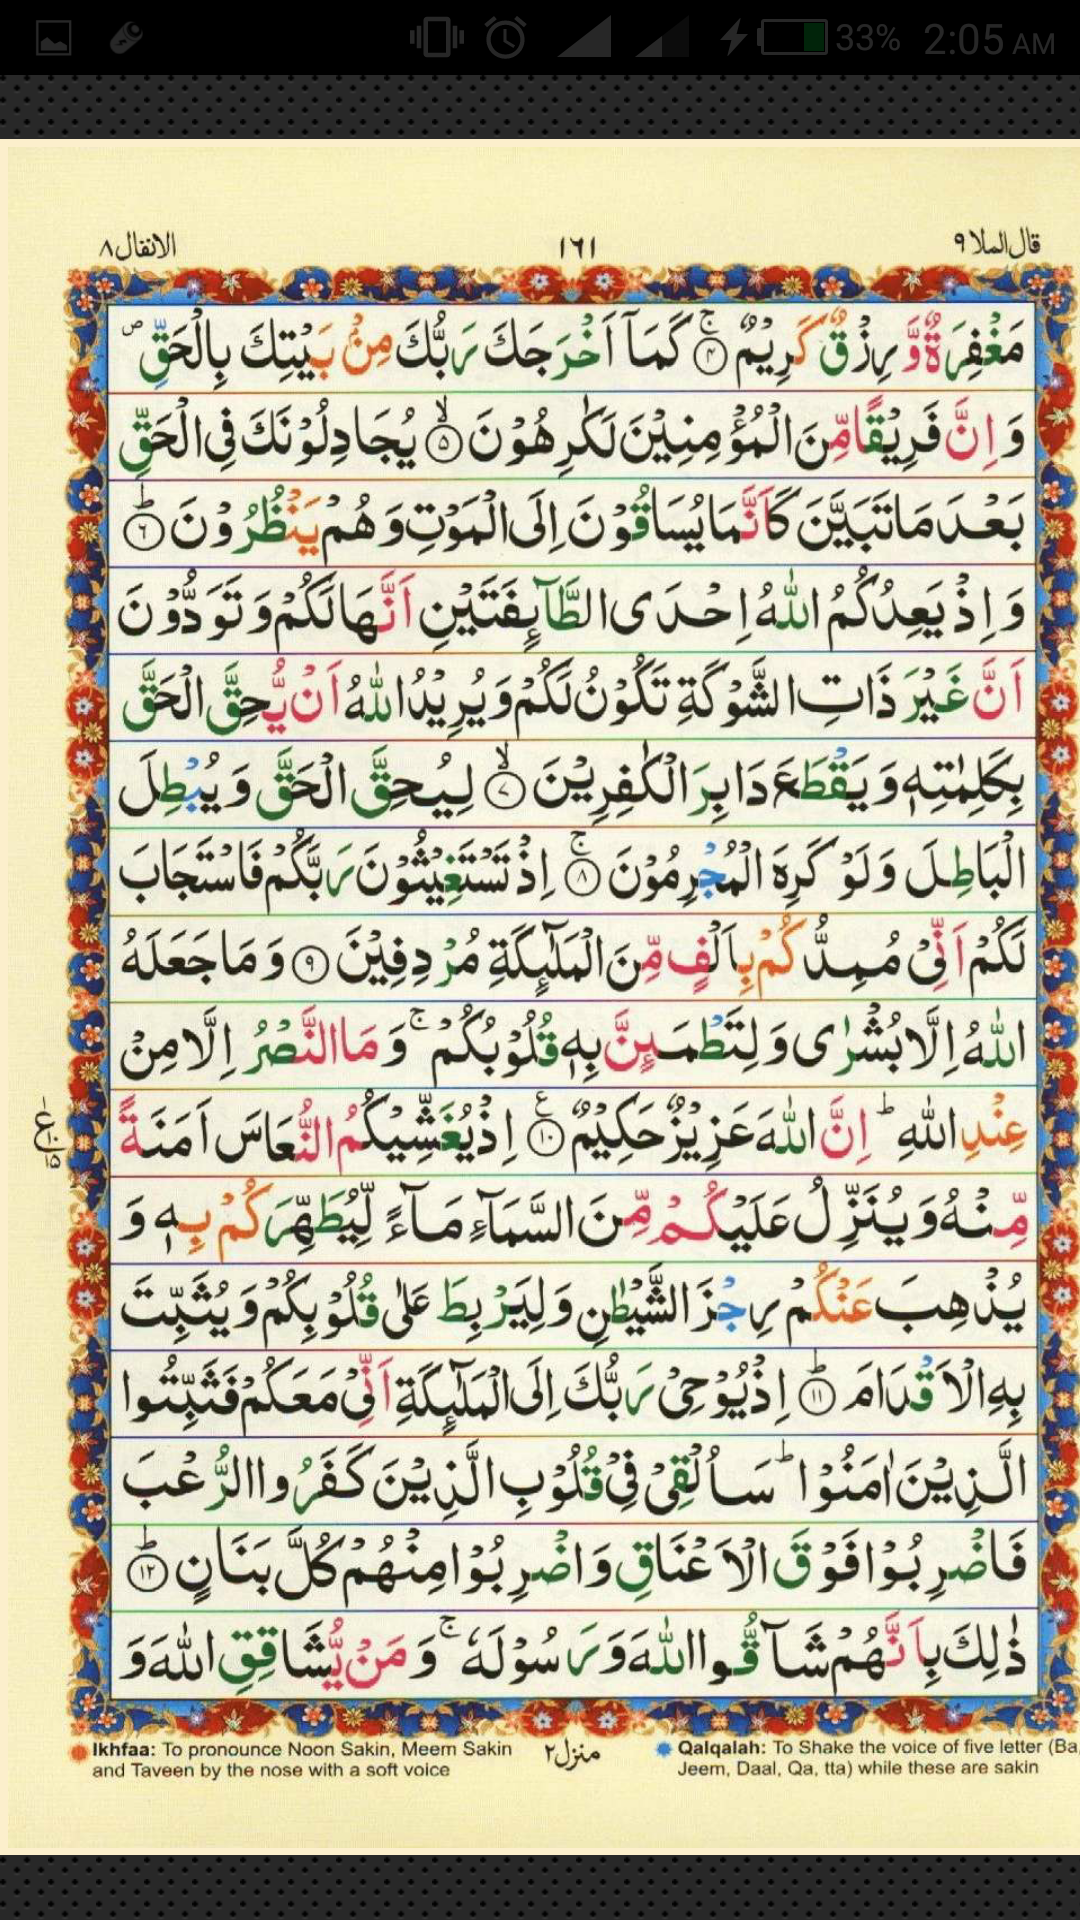 33% 2:05 AM
قال الملا ٩
١٦١
الانفال ٨
مَغْفِرَةٌ وَّرِزْقٌ كَرِيْمٌ ۚ﴿۴﴾ كَمَاۤ اَخْرَجَكَ رَبُّكَ مِنْۢ بَيْتِكَ بِالْحَقِّ ۪
وَاِنَّ فَرِيْقًا مِّنَ الْمُؤْمِنِيْنَ لَكٰرِهُوْنَ ۙ﴿۵﴾ يُجَادِلُوْنَكَ فِى الْحَقِّ
بَعْدَ مَا تَبَيَّنَ كَاَنَّمَا يُسَاقُوْنَ اِلَى الْمَوْتِ وَهُمْ يَنْظُرُوْنَ ؕ﴿۶﴾
وَاِذْ يَعِدُكُمُ اللّٰهُ اِحْدَى الطَّآئِفَتَيْنِ اَنَّهَا لَكُمْ وَتَوَدُّوْنَ
اَنَّ غَيْرَ ذَاتِ الشَّوْكَةِ تَكُوْنُ لَكُمْ وَيُرِيْدُ اللّٰهُ اَنْ يُّحِقَّ الْحَقَّ
بِكَلِمٰتِهٖ وَيَقْطَعَ دَابِرَ الْكٰفِرِيْنَ ۙ﴿۷﴾ لِيُحِقَّ الْحَقَّ وَيُبْطِلَ
الْبَاطِلَ وَلَوْ كَرِهَ الْمُجْرِمُوْنَ ۚ﴿۸﴾ اِذْ تَسْتَغِيْثُوْنَ رَبَّكُمْ فَاسْتَجَابَ
لَكُمْ اَنِّىْ مُمِدُّكُمْ بِاَلْفٍ مِّنَ الْمَلٰٓئِكَةِ مُرْدِفِيْنَ ﴿۹﴾ وَمَا جَعَلَهُ
اللّٰهُ اِلَّا بُشْرٰى وَلِتَطْمَئِنَّ بِهٖ قُلُوْبُكُمْ ۚ وَمَا النَّصْرُ اِلَّا مِنْ
عِنْدِ اللّٰهِ ؕ اِنَّ اللّٰهَ عَزِيْزٌ حَكِيْمٌ ﴿۱۰﴾ع اِذْ يُغَشِّيْكُمُ النُّعَاسَ اَمَنَةً
مِّنْهُ وَيُنَزِّلُ عَلَيْكُمْ مِّنَ السَّمَآءِ مَآءً لِّيُطَهِّرَكُمْ بِهٖ وَ
يُذْهِبَ عَنْكُمْ رِجْزَ الشَّيْطٰنِ وَلِيَرْبِطَ عَلٰى قُلُوْبِكُمْ وَيُثَبِّتَ
بِهِ الْاَقْدَامَ ؕ﴿۱۱﴾ اِذْ يُوْحِىْ رَبُّكَ اِلَى الْمَلٰٓئِكَةِ اَنِّىْ مَعَكُمْ فَثَبِّتُوا
الَّذِيْنَ اٰمَنُوْا ؕ سَاُلْقِىْ فِىْ قُلُوْبِ الَّذِيْنَ كَفَرُوا الرُّعْبَ
فَاضْرِبُوْا فَوْقَ الْاَعْنَاقِ وَاضْرِبُوْا مِنْهُمْ كُلَّ بَنَانٍ ؕ﴿۱۲﴾
ذٰلِكَ بِاَنَّهُمْ شَآقُّوا اللّٰهَ وَرَسُوْلَهٗ ۚ وَمَنْ يُّشَاقِقِ اللّٰهَ وَ
Ikhfaa: To pronounce Noon Sakin, Meem Sakin
and Taveen by the nose with a soft voice
منزل ٢
Qalqalah: To Shake the voice of five letter (Ba,
Jeem, Daal, Qa, tta) while these are sakin